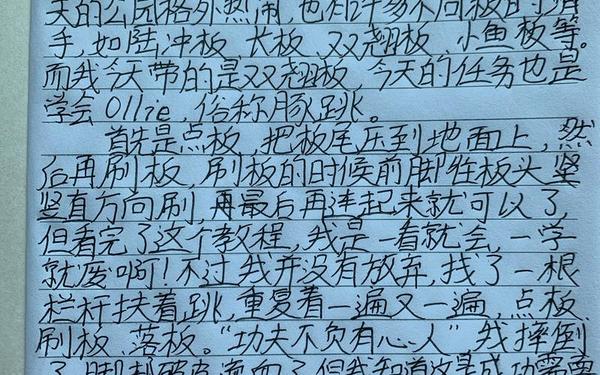 天的公园格外热闹，也有许多不同板的滑
手，如陆冲板、长板、双翘板、小鱼板等。
而我今天带的是双翘板，今天的任务也是
学会Ollie，俗称豚跳。
首先是点板，把板尾压到地面上，然
后再刷板，刷板的时候前脚往板头竖
竖直方向刷，再最后再连起来就可以了，
但看完了这个教程，我是一看就会，一学
就废啊！不过我并没有放弃，找了一根
栏杆扶着跳，重复着一遍又一遍，点板、
刷板、落板。“功夫不负有心人”，我摔倒
了，脚都破皮流血了，但我知道这是成功需要